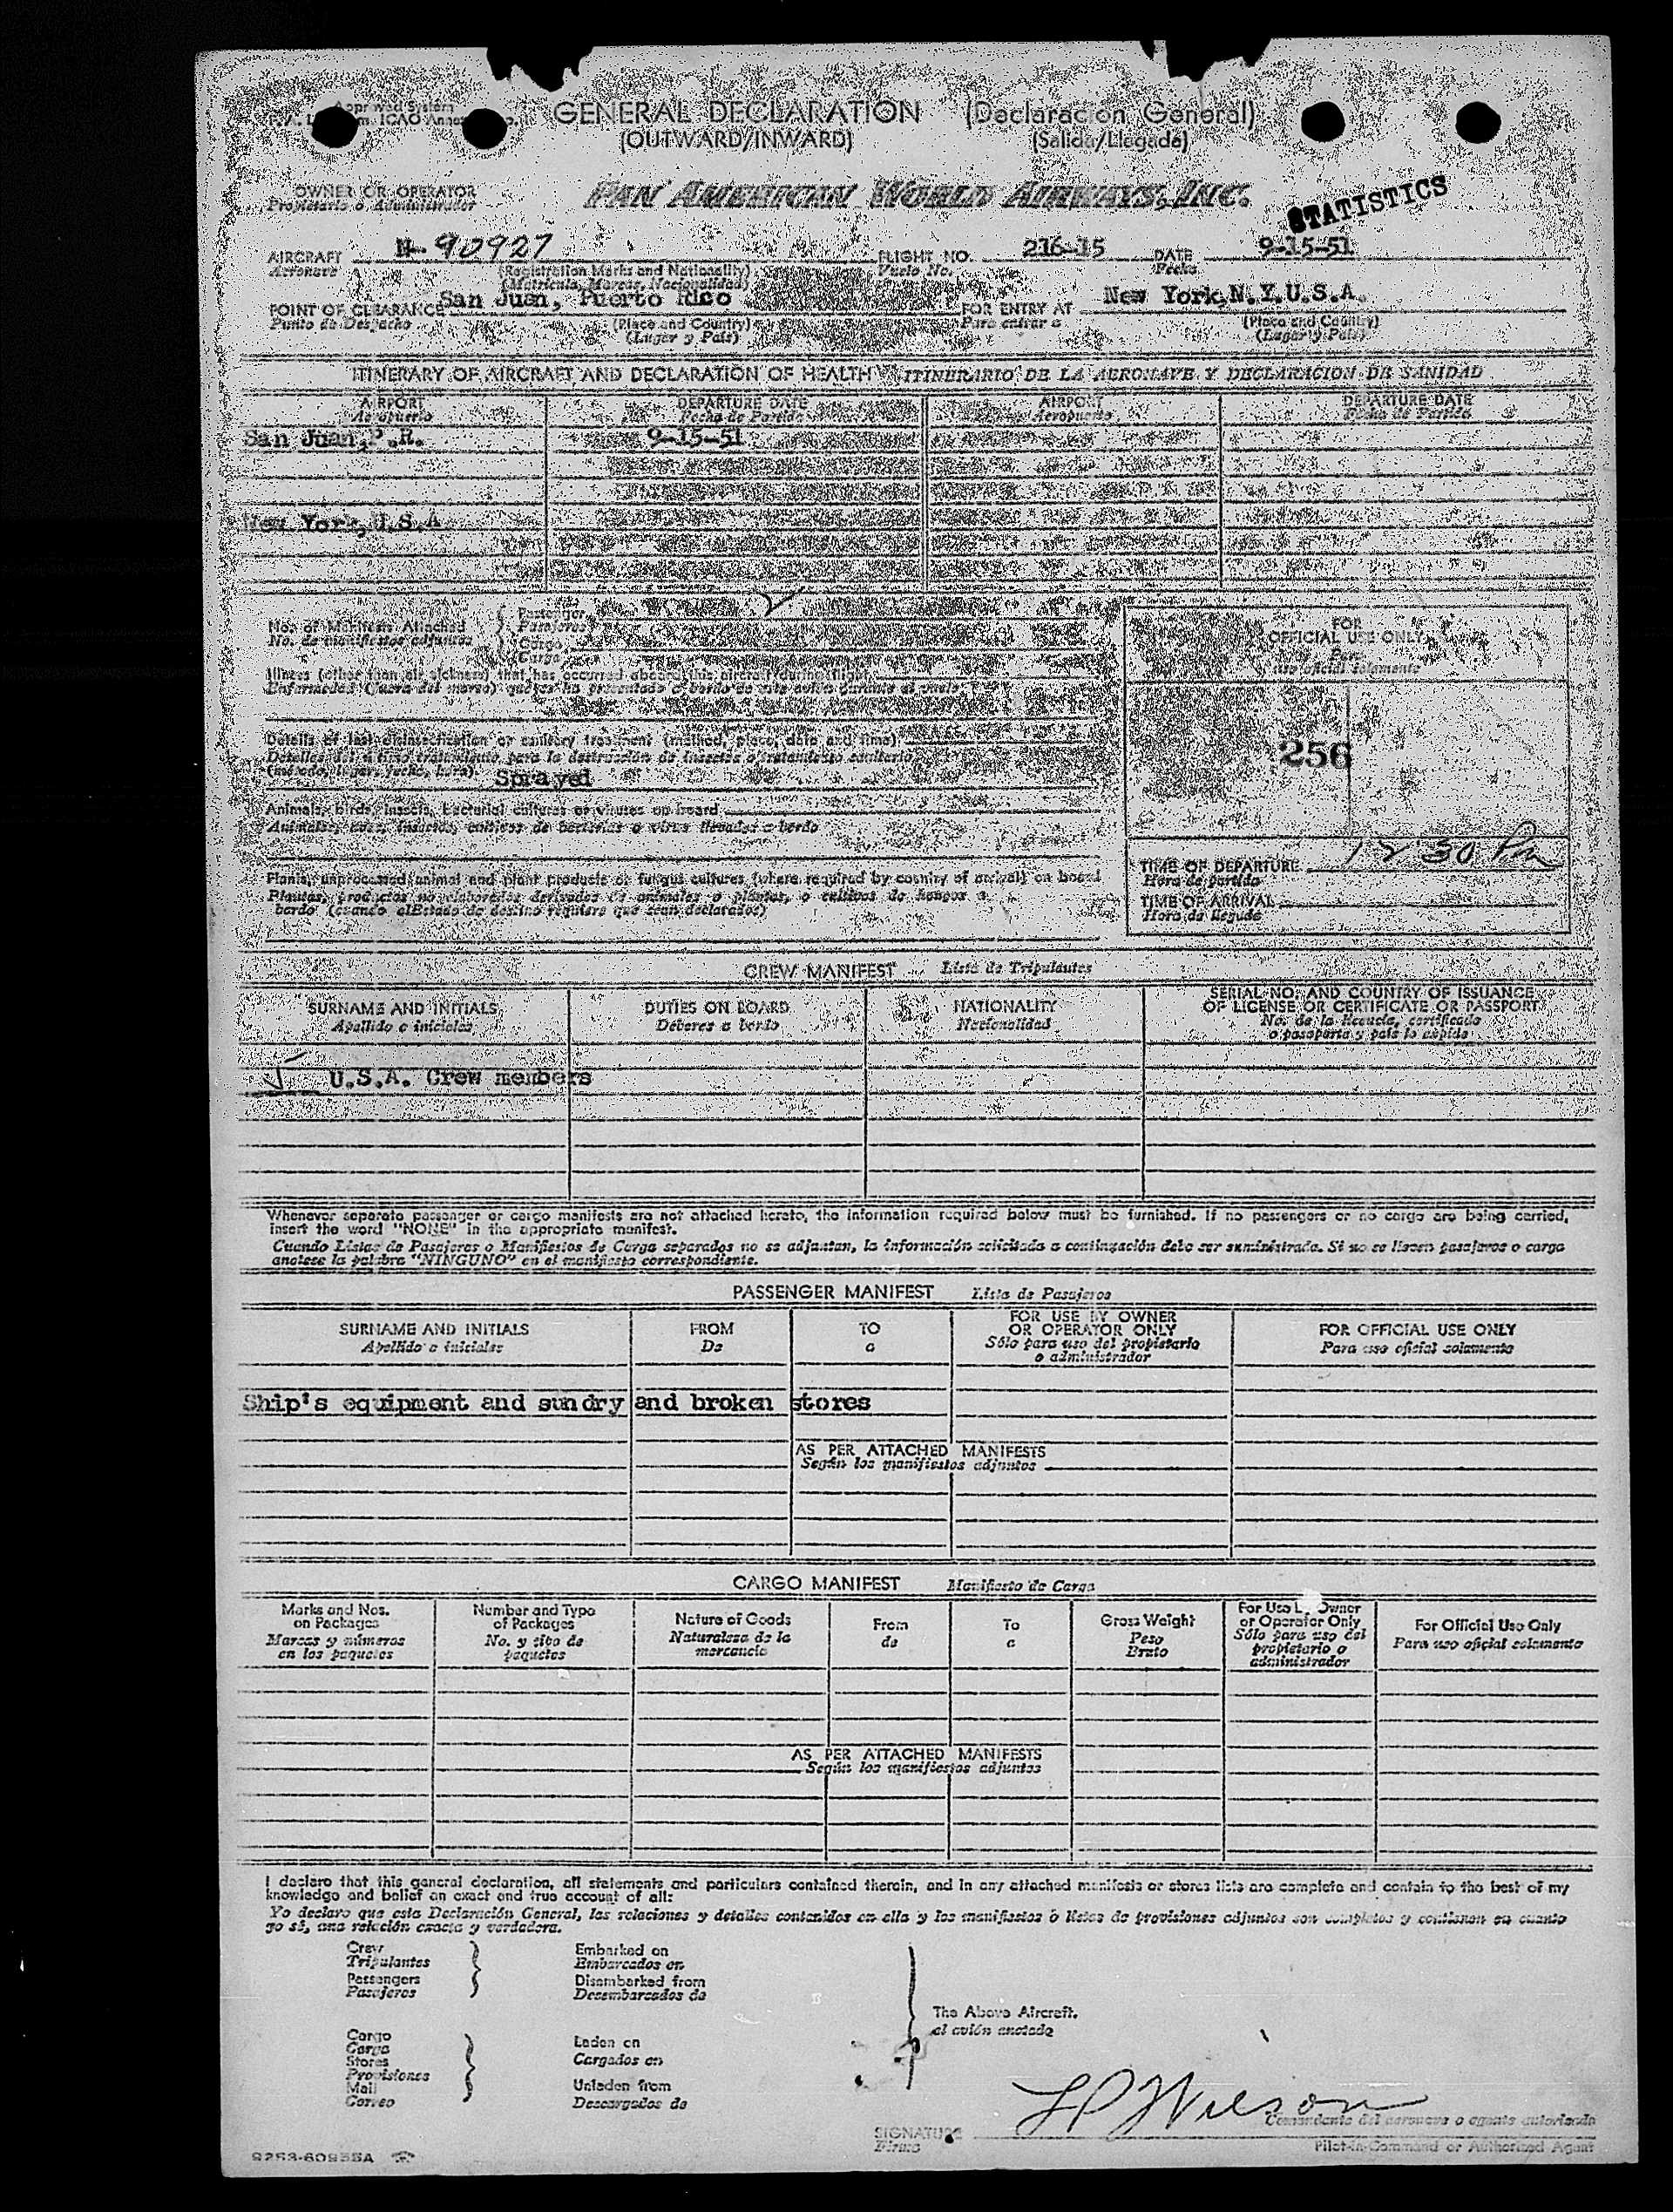 Approved System
GENERAL DECLARATION (Declaracion General)
(OUTWARD/INWARD) (Salida/Llegada)
OWNER OR OPERATOR PAN AMERICAN WORLD AIRWAYS, INC.
Propietario o Administrador
STATISTICS
AIRCRAFT N-90927 FLIGHT NO. 216-15 DATE 9-15-51
Aeronave (Registration Marks and Nationality) Vuelo No. Fecha
(Matricula, Marcas, Nacionalidad)
POINT OF CLEARANCE San Juan, Puerto Rico FOR ENTRY AT New York,N.Y.U.S.A.
Punto de Despacho (Place and Country) Para entrar a (Place and Country)
(Lugar y Pais) (Lugar y Pais)
ITINERARY OF AIRCRAFT AND DECLARATION OF HEALTH ITINERARIO DE LA AERONAVE Y DECLARACION DE SANIDAD
AIRPORT DEPARTURE DATE AIRPORT DEPARTURE DATE
Aeropuerto Fecha de Partida Aeropuerto Fecha de Partida
San Juan,P.R. 9-15-51
New York,U.S.A.
No. of Manifests Attached Passenger
No. de manifiestos adjuntos Pasajeros
Cargo
Carga
FOR
OFFICIAL USE ONLY
Para
uso oficial solamente
Illness (other than air sickness) that has occurred aboard this aircraft during flight
Enfermedad (fuera del mareo) que se ha presentado a bordo de este avion durante el vuelo
Details of last disinsectization or sanitary treatment (method, place, date and time)
Detalles del ultimo tratamiento para la destruccion de insectos o tratamiento sanitario
(metodo, lugar, fecha, hora). Sprayed
256
Animals, birds, insects, bacterial cultures or viruses on board
Animales, aves, insectos, cultivos de bacterias o virus llevados a bordo
Plants, unprocessed animal and plant products or fungus cultures (where required by country of arrival) on board
Plantas, productos no elaborados derivados de animales o plantas, o cultivos de hongos a
bordo (cuando el Estado de destino requiere que sean declarados)
TIME OF DEPARTURE 12 30 Pm
Hora de partida
TIME OF ARRIVAL
Hora de llegada
CREW MANIFEST Lista de Tripulantes
SURNAME AND INITIALS DUTIES ON BOARD NATIONALITY SERIAL NO. AND COUNTRY OF ISSUANCE
OF LICENSE OR CERTIFICATE OR PASSPORT
Apellido e iniciales Deberes a bordo Nacionalidad No. de la licencia, certificado
o pasaporte y pais lo expide
U.S.A. Crew members
Whenever separate passenger or cargo manifests are not attached hereto, the information required below must be furnished. If no passengers or no cargo are being carried,
insert the word "NONE" in the appropriate manifest.
Cuando Listas de Pasajeros o Manifiestos de Carga separados no se adjuntan, la información solicitada a continuación debe ser suministrada. Si no se llevan pasajeros o carga
anotese la palabra "NINGUNO" en el manifiesto correspondiente.
PASSENGER MANIFEST Lista de Pasajeros
SURNAME AND INITIALS FROM TO FOR USE BY OWNER
OR OPERATOR ONLY FOR OFFICIAL USE ONLY
Apellido e iniciales De a Sólo para uso del propietario
o administrador Para uso oficial solamente
Ship's equipment and sundry and broken stores
AS PER ATTACHED MANIFESTS
Según los manifiestos adjuntos
CARGO MANIFEST Manifiesto de Carga
Marks and Nos.
on Packages
Marcas y números
en los paquetes
Number and Type
of Packages
No. y tipo de
paquetes
Nature of Goods
Naturaleza de la
mercancia
From
de
To
a
Gross Weight
Peso
Bruto
For Use Owner
or Operator Only
Sólo para uso del
propietario o
administrador
For Official Use Only
Para uso oficial solamente
AS PER ATTACHED MANIFESTS
Según los manifiestos adjuntos
I declare that this general declaration, all statements and particulars contained therein, and in any attached manifests or stores lists are complete and contain to the best of my
knowledge and belief an exact and true account of all:
Yo declaro que esta Declaración General, las relaciones y detalles contenidos en ella y los manifiestos o listas de provisiones adjuntos son completos y contienen en cuanto
yo sé, una relación exacta y verdadera.
Crew Embarked on
Tripulantes Embarcados en
Passengers Disembarked from
Pasajeros Desembarcados de
The Above Aircraft.
al avión anotado
Cargo Laden on
Carga Cargados en
Stores
Provisiones
Mail Unladen from
Correo Descargados de
SIGNATURE
Firma
Wilson
Comandante del aeronave o agente autorizado
Pilot-in-Command or Authorized Agent
9253-60955A